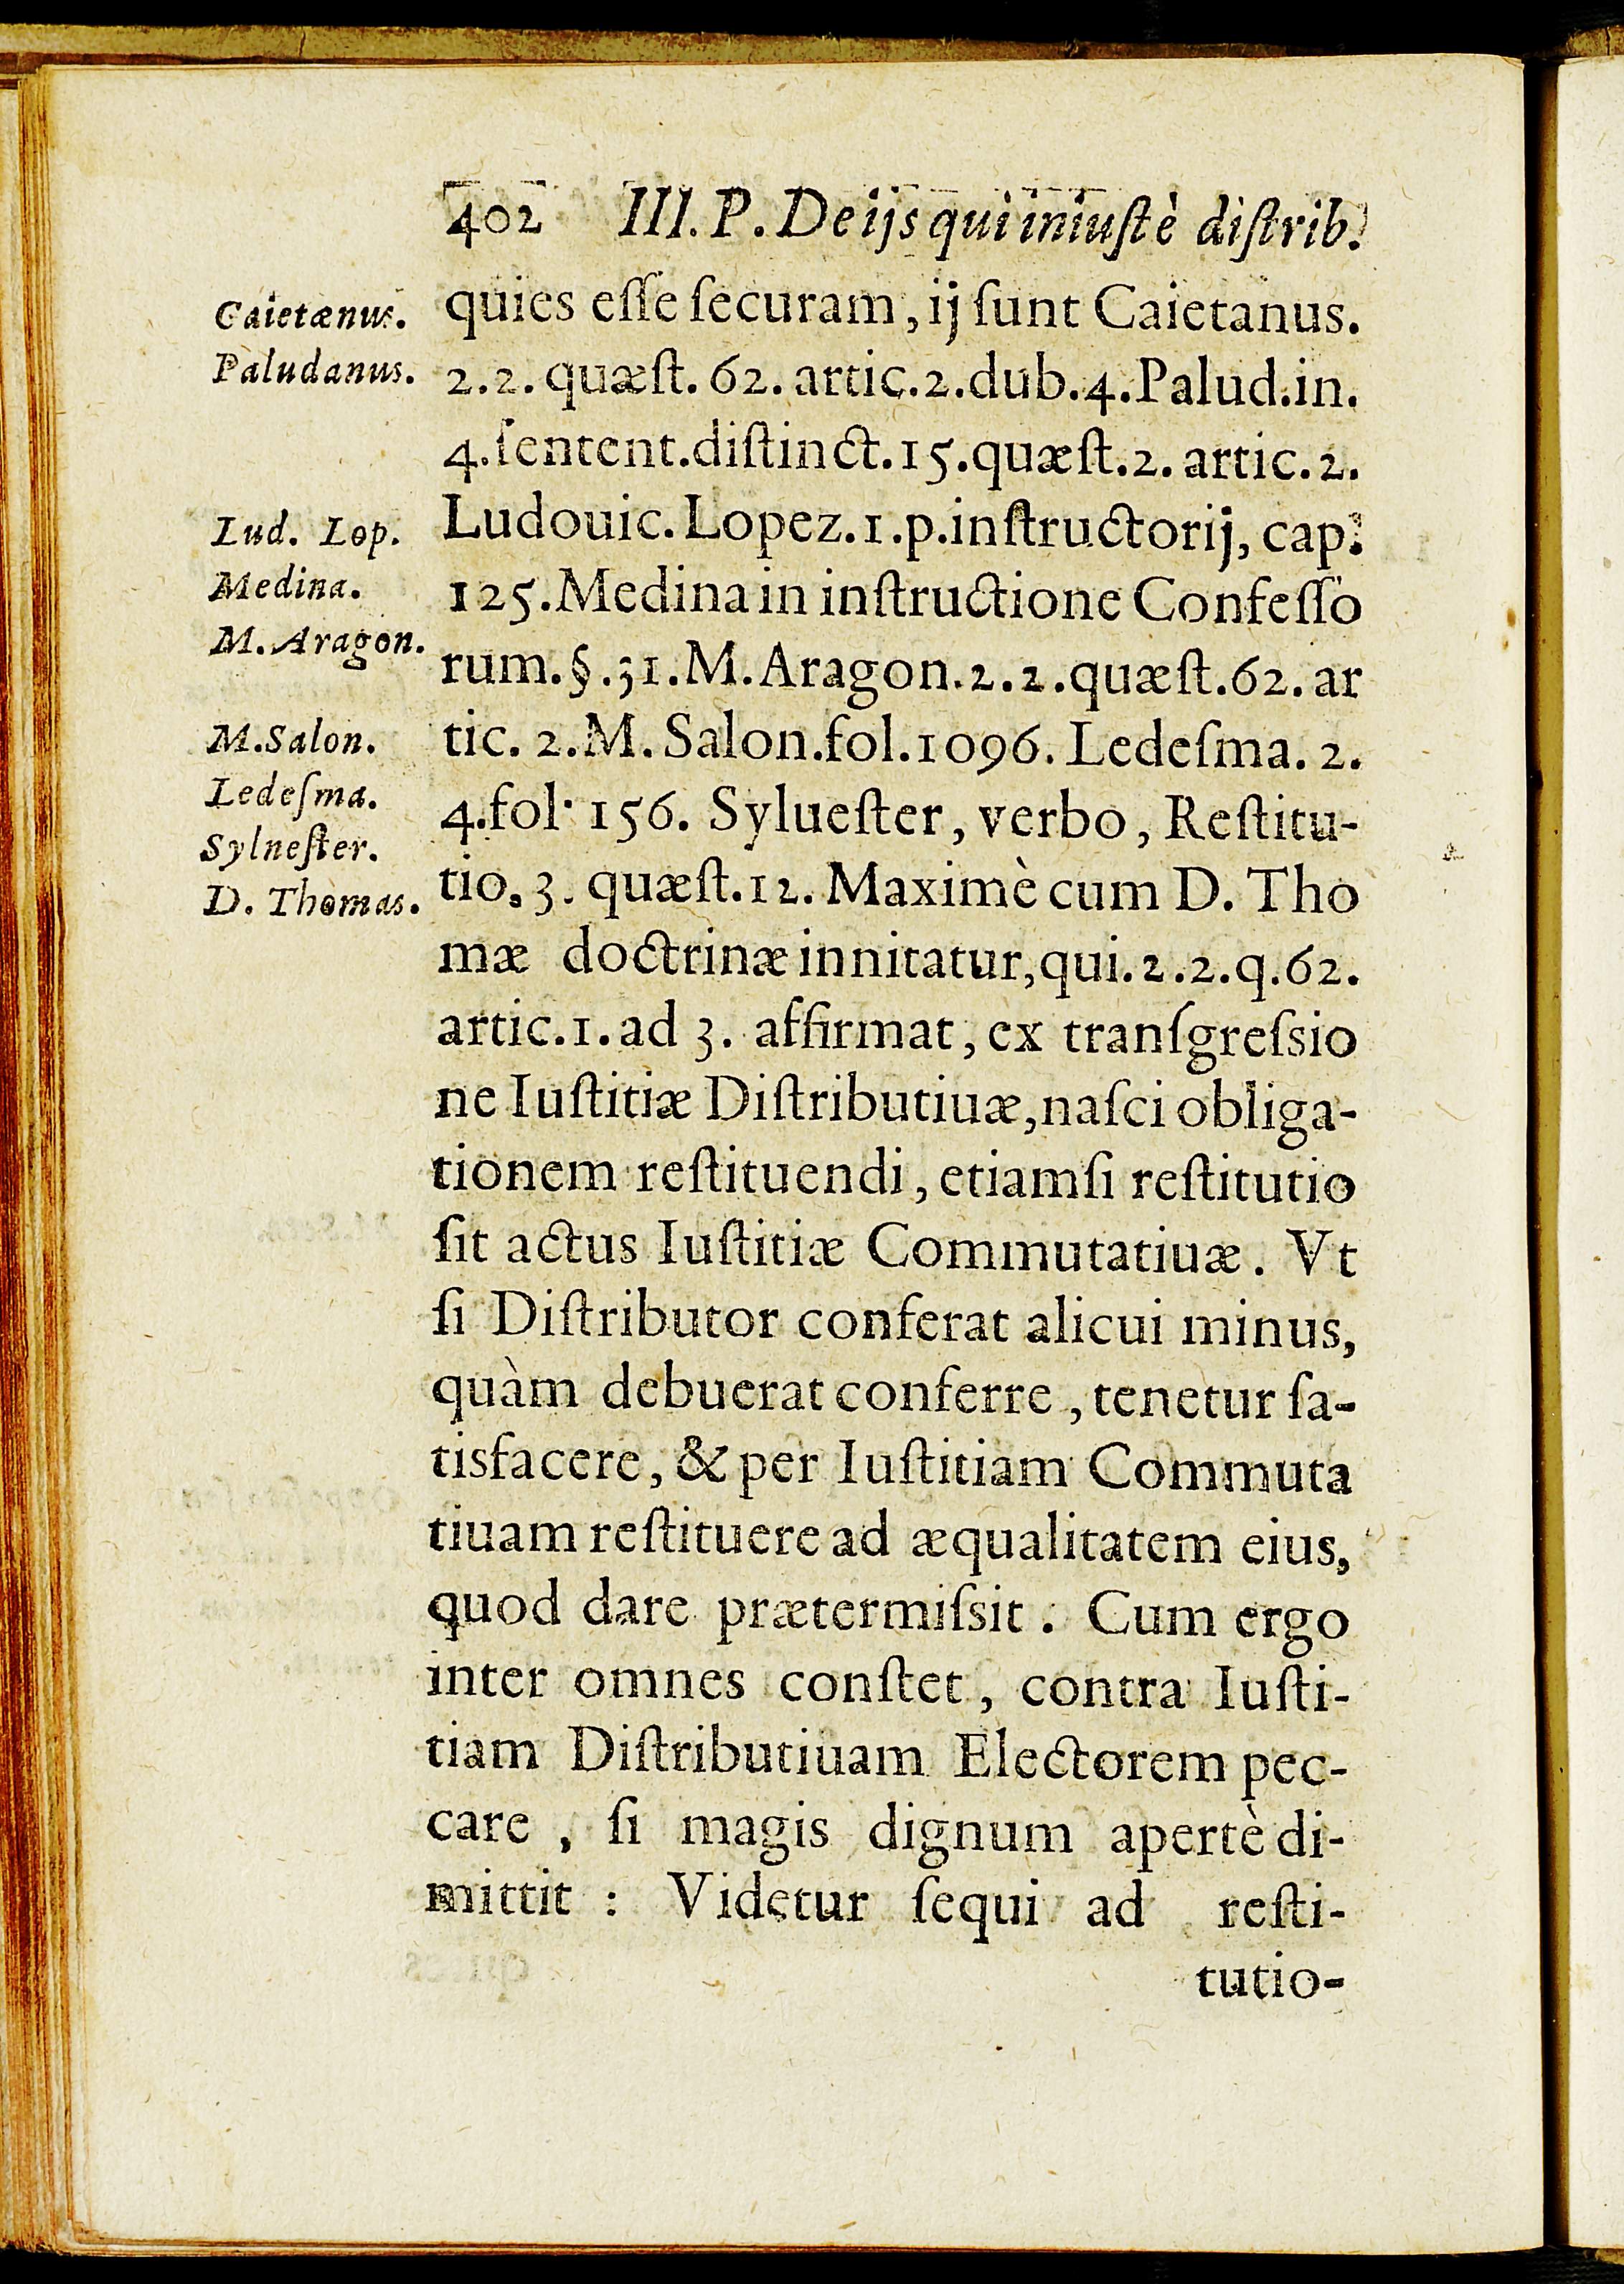 402 III. P. De ijs qui iniustè distrib.
Caietænus.
Paludanus.
Lud. Lop.
Medina.
M. Aragon.
M. Salon.
Ledeſma.
Sylneſter.
D. Thomas.
quies eſſe ſecuram, ij ſunt Caietanus.
2.2. quæſt. 62. artic. 2. dub. 4. Palud. in.
4. ſentent. diſtinct. 15. quæſt. 2. artic. 2.
Ludouic. Lopez. 1. p. inſtructorij, cap.
125. Medina in inſtructione Confeſſo
rum. §. 31. M. Aragon. 2.2. quæſt. 62. ar
tic. 2. M. Salon. fol. 1096. Ledeſma. 2.
4. fol. 156. Sylueſter, verbo, Reſtitu-
tio. 3. quæſt. 12. Maximè cum D. Tho
mæ doctrinæ innitatur, qui. 2.2. q. 62.
artic. 1. ad 3. affirmat, ex tranſgreſsio
ne Iuſtitiæ Diſtributiuæ, naſci obliga-
tionem reſtituendi, etiamſi reſtitutio
ſit actus Iuſtitiæ Commutatiuæ. Vt
ſi Diſtributor conferat alicui minus,
quàm debuerat conferre, tenetur ſa-
tisfacere, & per Iuſtitiam Commuta
tiuam reſtituere ad æqualitatem eius,
quod dare prætermiſsit. Cum ergo
inter omnes conſtet, contra Iuſti-
tiam Diſtributiuam Electorem pec-
care, ſi magis dignum apertè di-
mittit : Videtur ſequi ad reſti-
tutio-